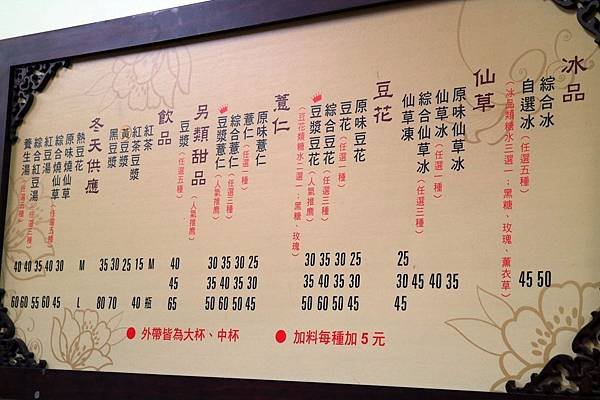 冰品
綜合冰 50
自選冰(任選五種) 45
(冰品類糖水三選一:黑糖、玫瑰、薰衣草)
仙草
原味仙草冰 35
仙草冰(任選一種) 40
綜合仙草冰(任選三種) 45
仙草凍 25 30 45
豆花
原味豆花 25 30 45
豆花(任選一種) 30 35 50
綜合豆花(任選三種) 35 40 60
豆漿豆花(人氣推薦) 30 35 50
(豆花類糖水二選一:黑糖、玫瑰)
薏仁
原味薏仁 25 30 45
薏仁(任選一種) 30 35 50
綜合薏仁(任選三種) 35 40 60
豆漿薏仁(人氣推薦) 30 35 50
另類甜品(人氣推薦)
豆漿(任選五種) 40 45 65
飲品 M 瓶
紅茶 15 40
紅茶豆漿 25
黃豆漿 30 70
黑豆漿 35 80
冬天供應
熱豆花 M L
原味燒仙草 30 45
綜合燒仙草(任選五種) 40 60
紅豆湯 35 55
綜合紅豆湯(任選三種) 40 60
養生湯(任選五種) 40 60
● 外帶皆為大杯、中杯
● 加料每種加5元